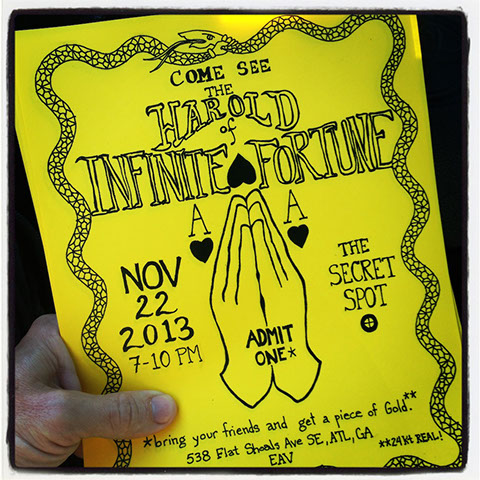 COME SEE
THE
HAROLD
of
INFINITE FORTUNE
A A
NOV
22
2013
7-10 PM
THE
SECRET
SPOT
ADMIT
ONE*
*bring your friends and get a piece of Gold.**
538 Flat Shoals Ave SE, ATL, GA
EAV
**24 Kt REAL!